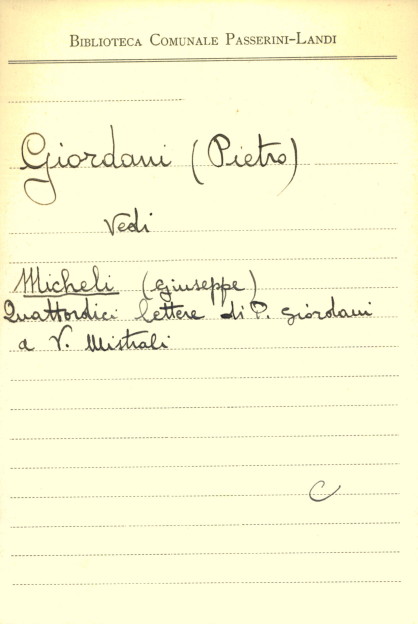 BIBLIOTECA COMUNALE PASSERINI-LANDI
Giordani (Pietro)
Vedi
Micheli (Giuseppe)
Quattordici lettere di P. Giordani
a V. Mistrali
C